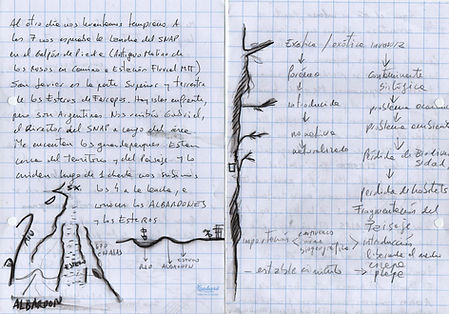 Al otro día nos levantamos temprano. A
las 7 nos esperaba la lancha del SNAP
en el Galpón de Piedra (Antiguo Molino de
los Rosos, en Camino a Estación Fluvial MTT)
San Javier es la parte Superior y Terrestre
de los Esteros de Farrapos. Hay islas enfrente,
pero son Argentinas. Nos recibió Gabriel,
el director del SNAP a cargo del área.
Me encantan los guardaparques. Están
cerca del Territorio y del Paisaje y lo
cuidan. Luego de 1 charla nos subimos
los 4 a la lancha, a
conocer los ALBARDONES
y los ESTEROS
RÍO
ESTERO
ALBARDON
RIO
ALBARDON
ESTERO
Exótica / exótica invasora
foráneo
introducida
no nativa
naturalizado
contaminante
biológica
problema económico
problema ambiental
Pérdida de Biodiver
sidad
pérdida de hábitats
Fragmentación del
Paisaje
importancia
biogeográfica
introducción
liberada al medio
escapa
plaga
estable en núcleo